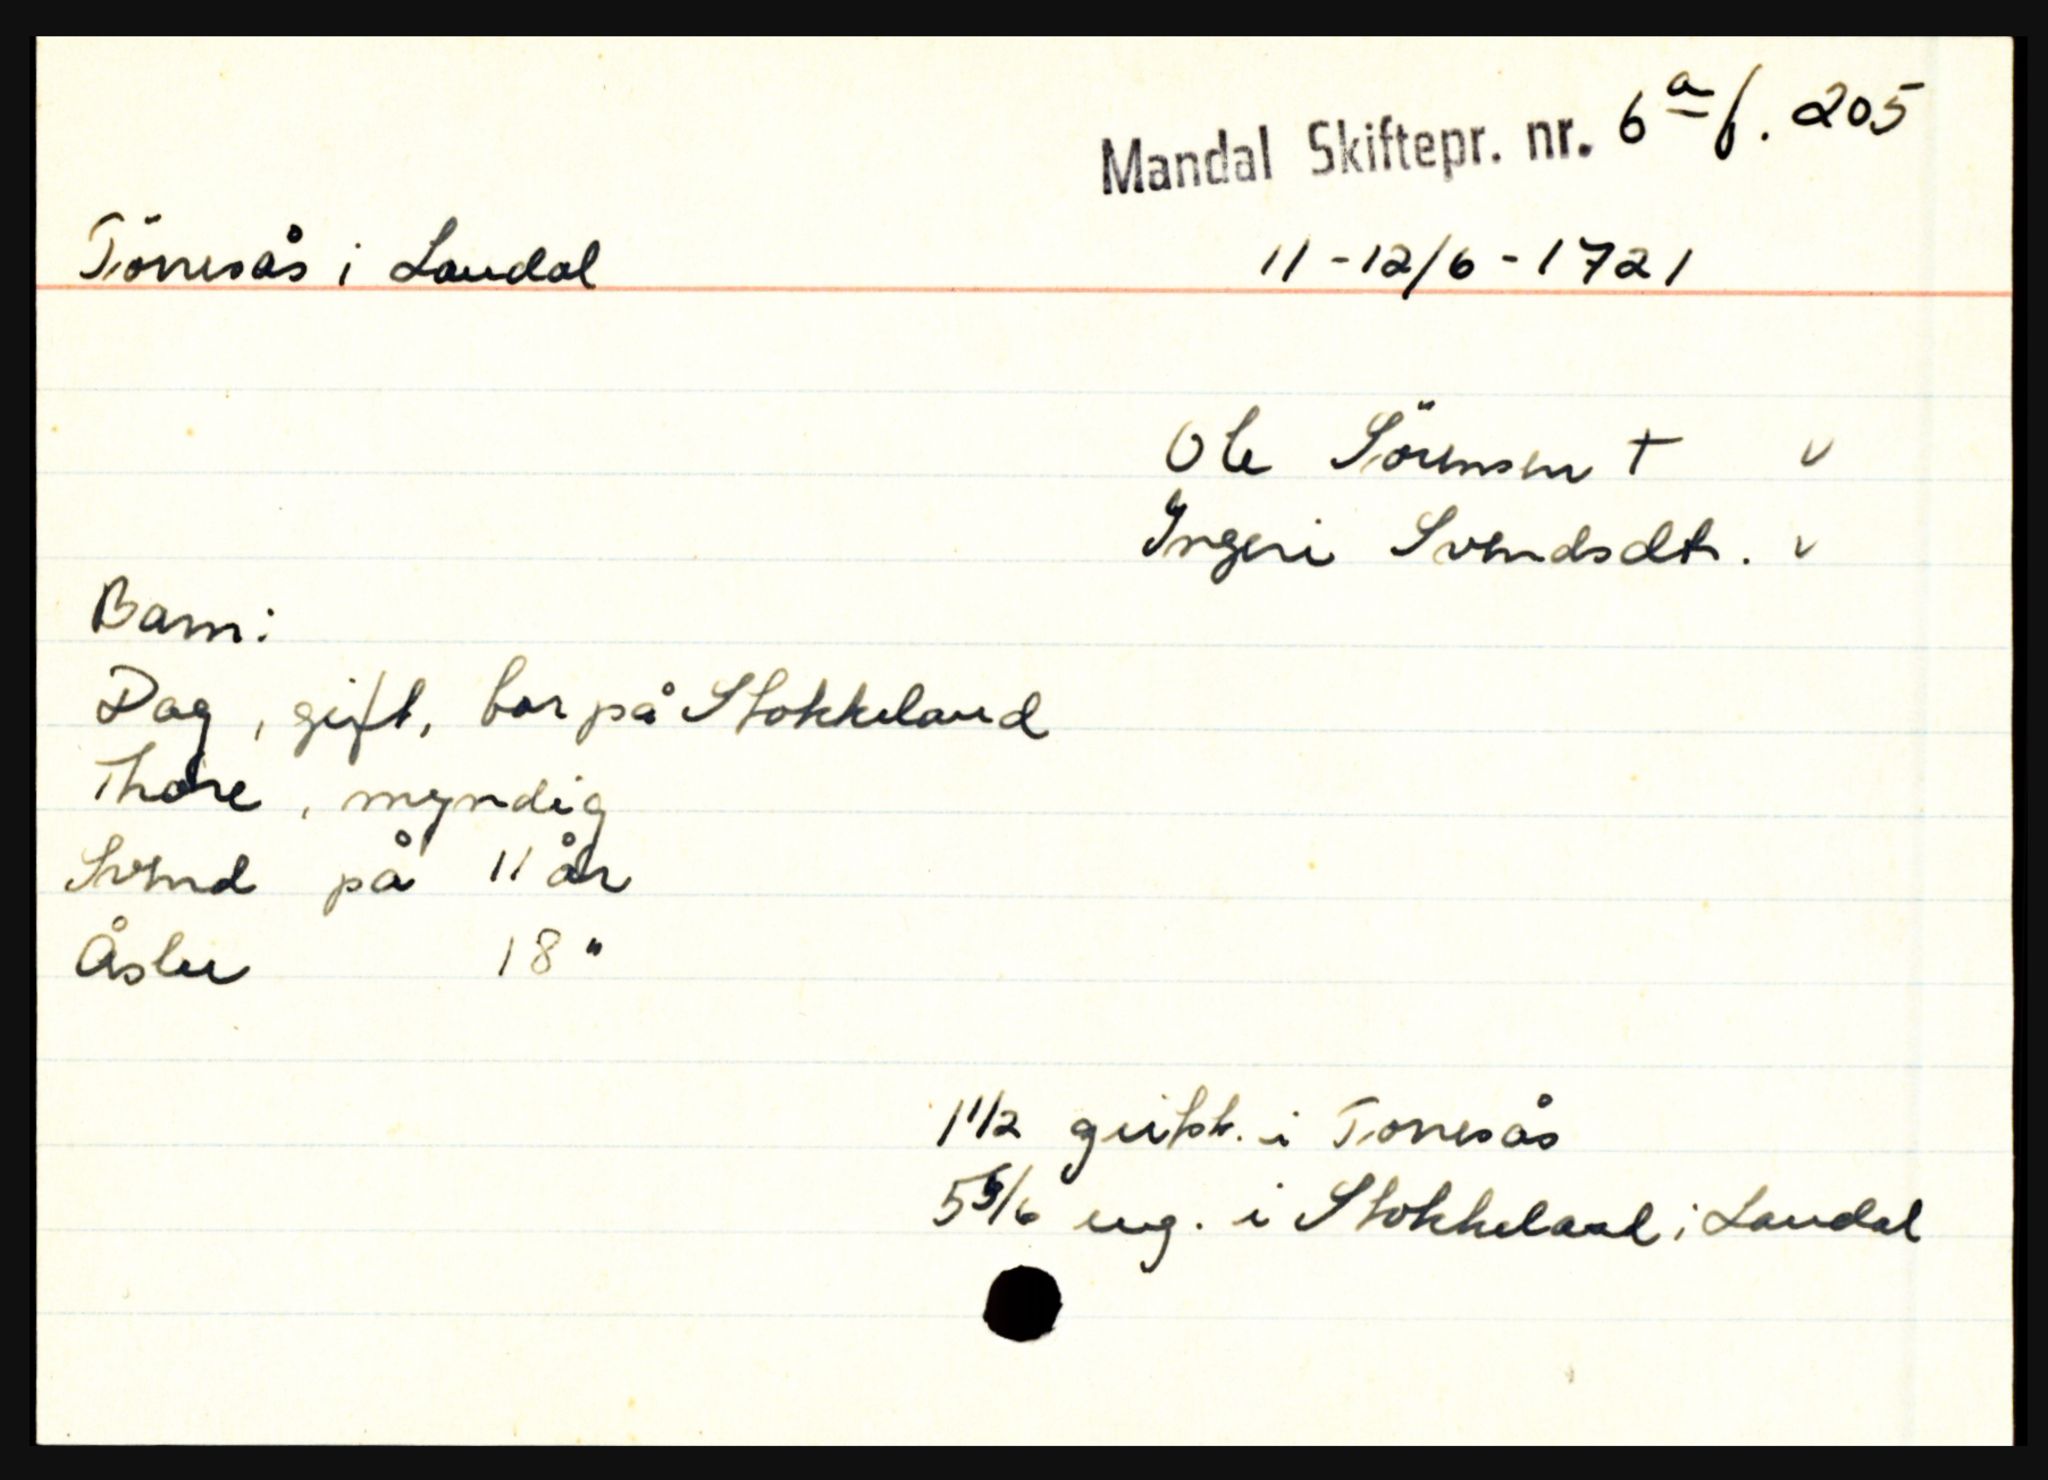 Mandal Skiftepr. nr. 6a f. 205
Tönesås i Laudal 11-12/6-1721
Ole Sörensen † v
Ingeri Svendsdtr. v
Barn:
Dag, gift, bor på Stokkeland
Thore, myndig
Svend på 11 år
Åslau 18 "
1 1/2 geitsk. i Tonesås
5 5/6 eng. i Stokkeland i Laudal